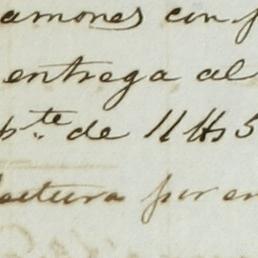 amones con p
entrega al
pte de 11 lbs 5
factura por en